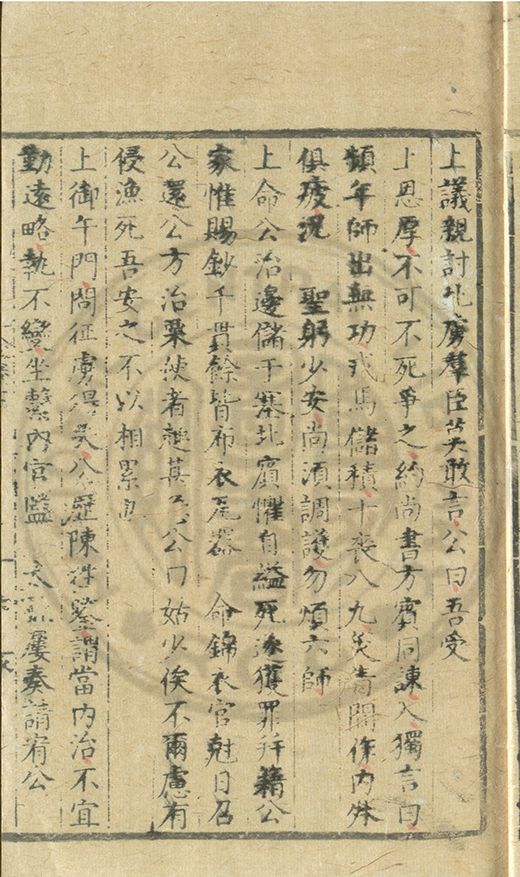 上議親討北虜羣臣莫敢言公曰吾受
上恩厚不可不死爭之約尚書方賓同諫入獨言曰
頻年師出無功戎馬儲積十喪八九災眚間作內外
俱疲況 聖躬少安尚須調護勿煩六師
上命公治邊儲于塞北賓懼自縊死遂獲罪并籍公
家惟賜鈔千貫餘皆布衣瓦器 命錦衣官尅日召
公還公方治粟使者趣其公曰姑少俟不爾慮有
侵漁死吾安之不以相累
上御午門問征虜得失公歷陳往謂當內治不宜
勤遠略執不變坐繫內官監 太屢奏請宥公